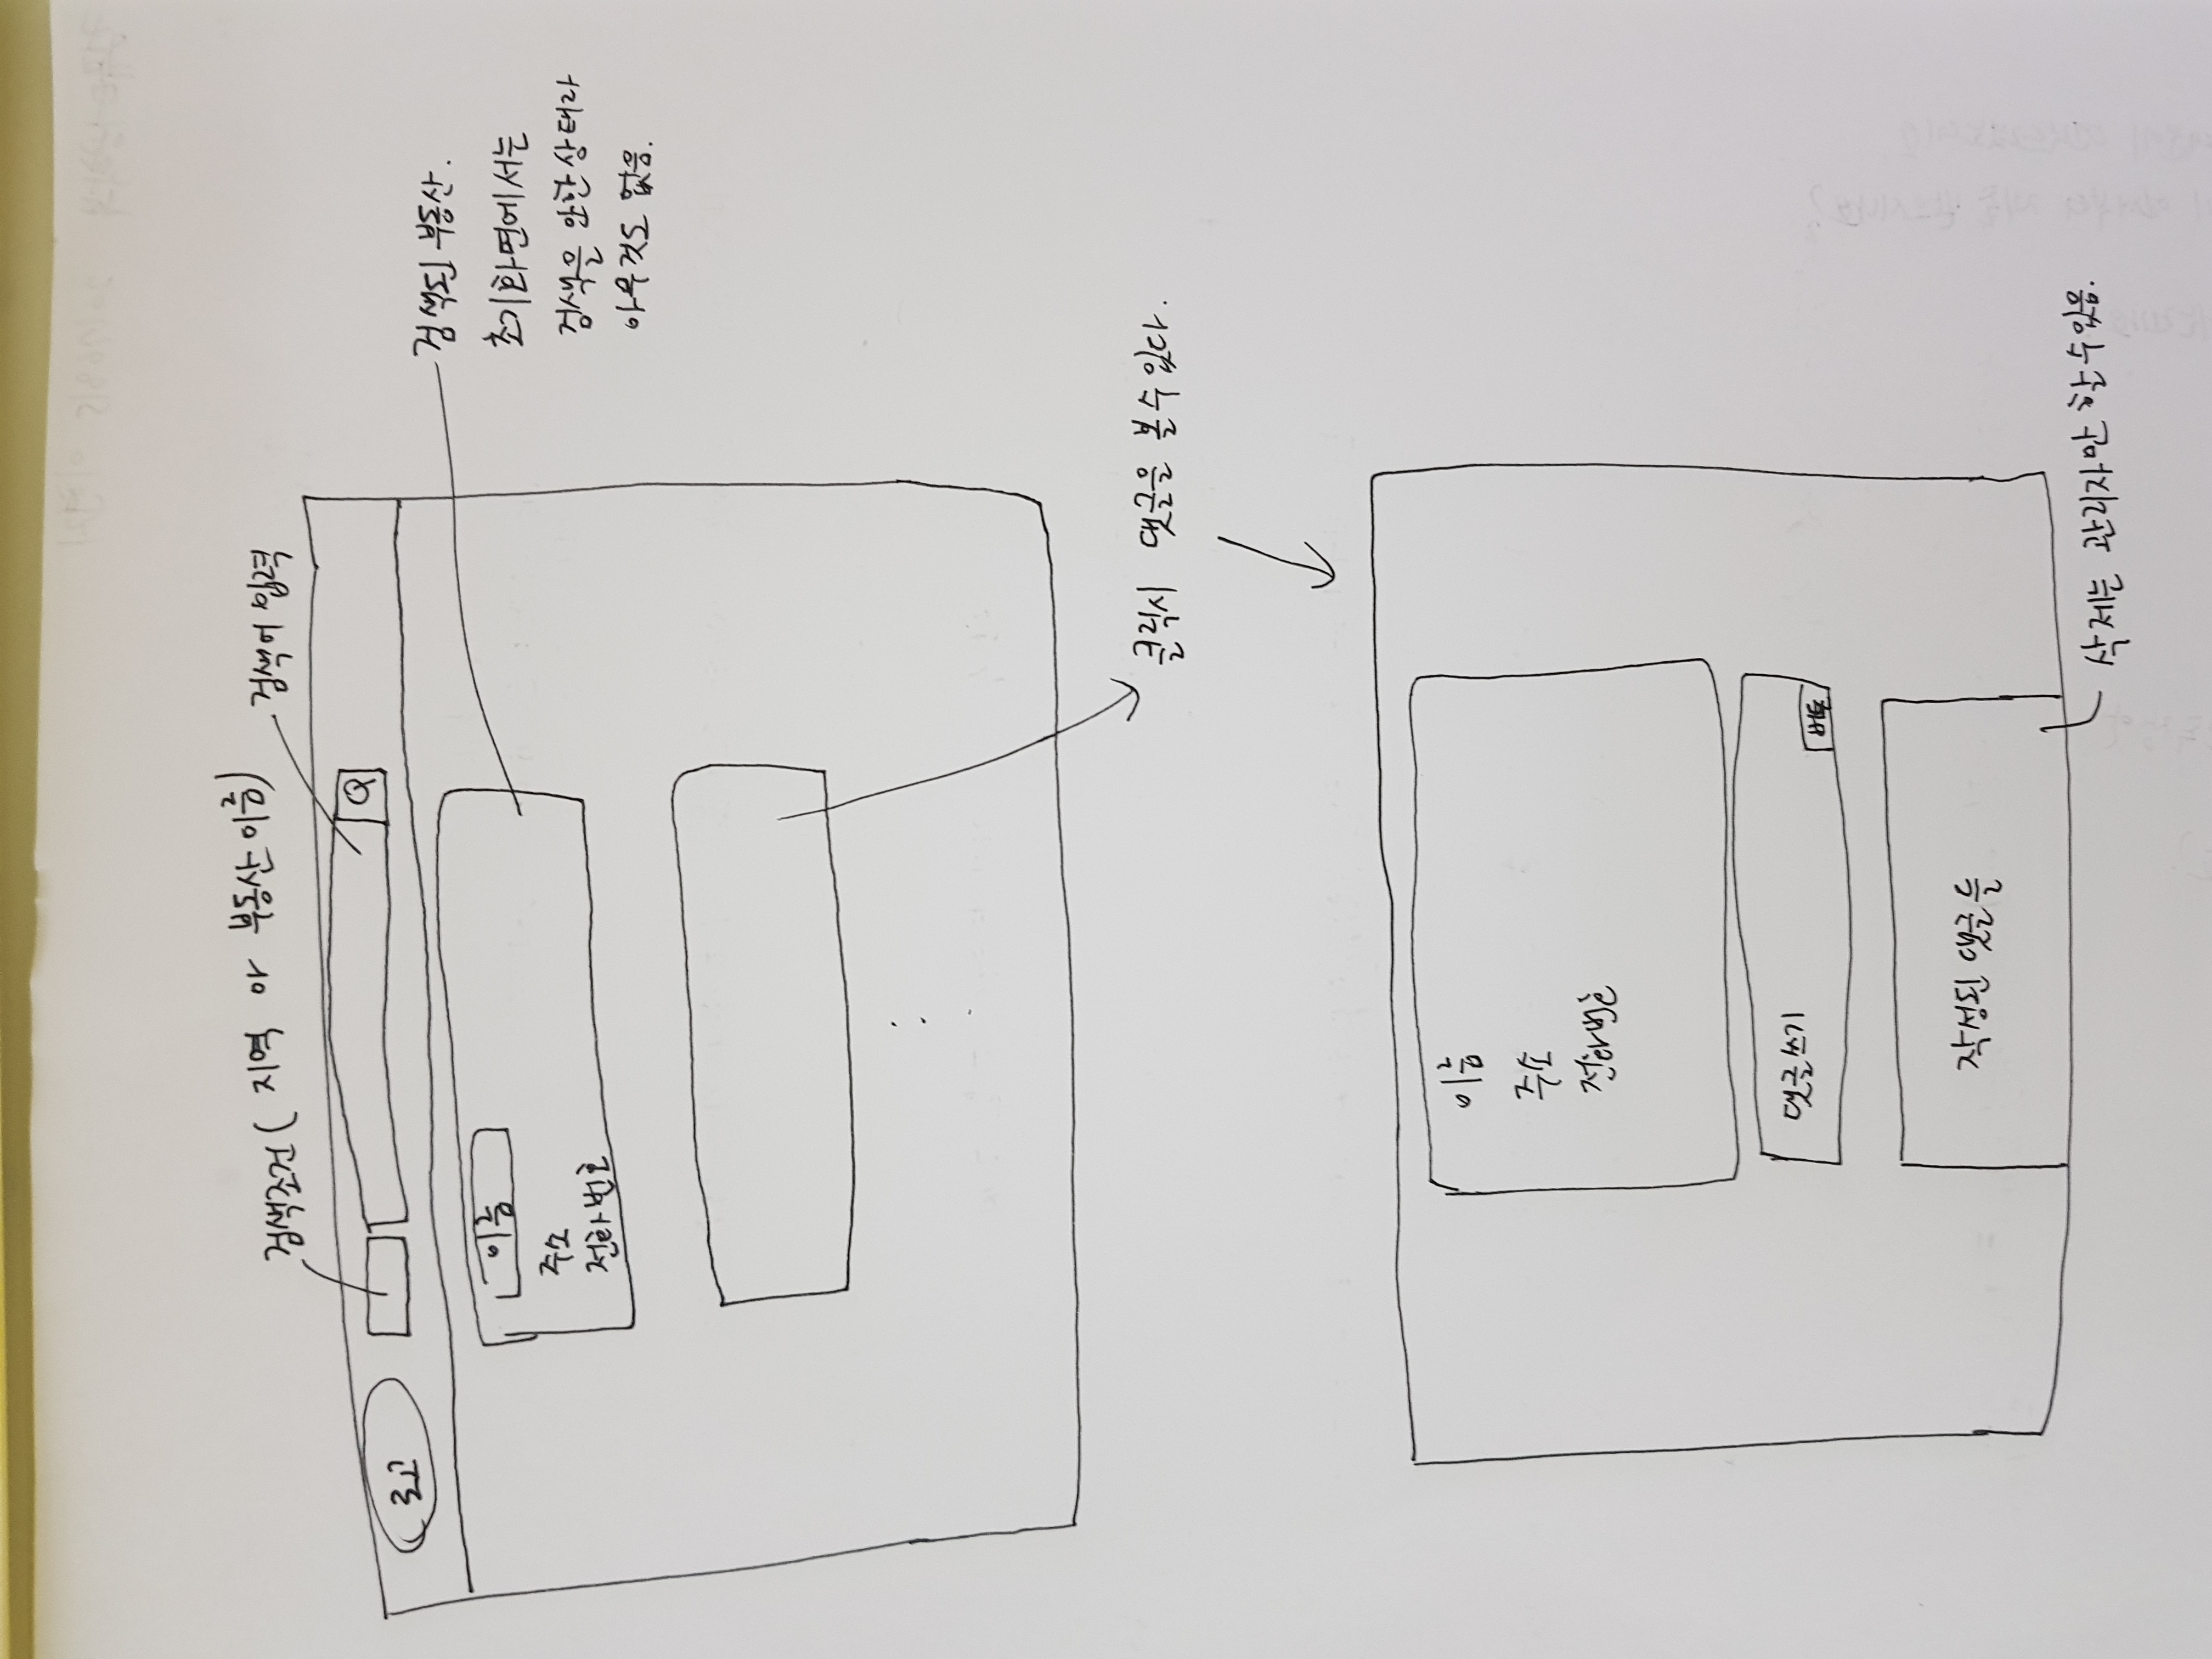 검색조건 ( 지역 아 부동산이름)
검색어 입력
로고
Q
이름
주소
전화번호
검색된 부동산.
초기화면에서는
검색을 안한상태라
아무것도 없음.
클릭시 댓글을 볼수있다.
이름
주소
전화번호
댓글쓰기
버튼
작성된 댓글들
삭제는 관리자만 할수있음.